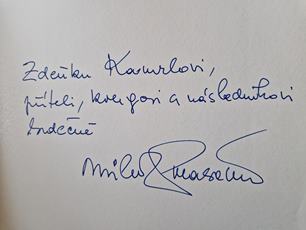 Zdeňku Karmrlovi,
příteli, kolegovi a následníkovi
srdečně
Miloš